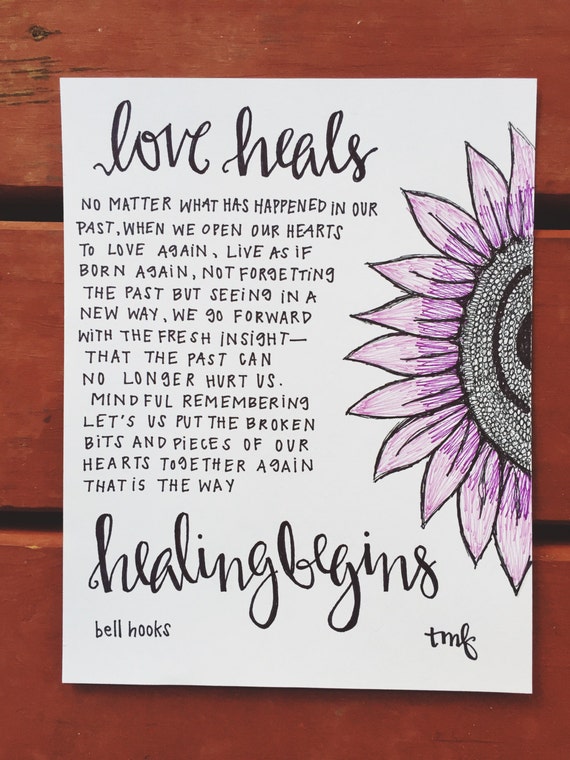 love heals
NO MATTER WHAT HAS HAPPENED IN OUR
PAST, WHEN WE OPEN OUR HEARTS
TO LOVE AGAIN, LIVE AS IF
BORN AGAIN, NOT FORGETTING
THE PAST BUT SEEING IN A
NEW WAY, WE GO FORWARD
WITH THE FRESH INSIGHT—
THAT THE PAST CAN
NO LONGER HURT US.
MINDFUL REMEMBERING
LET'S US PUT THE BROKEN
BITS AND PIECES OF OUR
HEARTS TOGETHER AGAIN
THAT IS THE WAY
healing begins
bell hooks
tmf